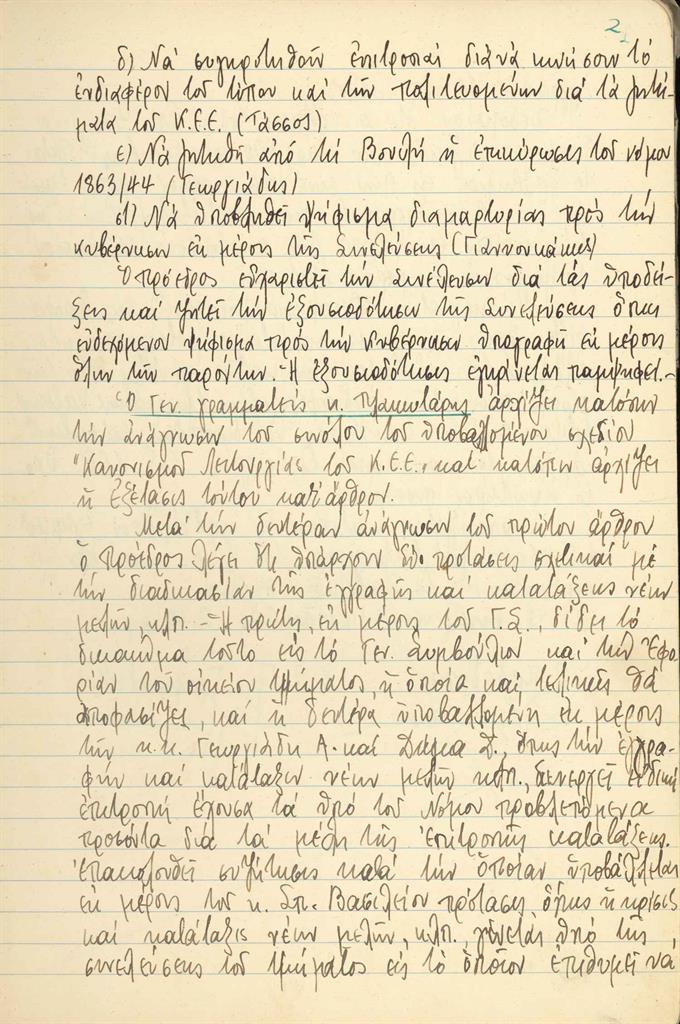 2
δ) Νά συγκροτηθοῦν ἐπιτροπαί διά νά κινήσουν τό
ἐνδιαφέρον τοῦ τύπου καί τῶν πολιτευομένων διά τά ζητή-
ματα τοῦ Κ.Ε.Ε. (Τάσσος)
ε) Νά ζητηθῇ ἀπό τή Βουλή ἡ ἐπικύρωσις τοῦ νόμου
1863/44 (Γεωργιάδης)
στ) Νά ὑποβληθεῖ ψήφισμα διαμαρτυρίας πρός τήν
κυβέρνησιν ἐκ μέρους τῆς Συνελεύσεως (Γιαννουκάκης)
Ὁ πρόεδρος εὐχαριστεῖ τήν Συνέλευσιν διά τάς ὑποδεί-
ξεις καί ζητεῖ τήν ἐξουσιοδότησιν τῆς Συνελεύσεως ὅπως
ἐνδεχόμενον ψήφισμα πρός τήν κυβέρνησιν ὑπογραφῇ ἐκ μέρους
ὅλων τῶν παρόντων. - Ἡ ἐξουσιοδότησις ἐγκρίνεται παμψηφεί. -
Ὁ Γεν. γραμματεύς κ. Πλακωτάρης ἀρχίζει κατόπιν
τήν ἀνάγνωσιν τοῦ συνόλου τοῦ ὑποβαλλομένου σχεδίου
"Κανονισμοῦ Λειτουργίας τοῦ Κ.Ε.Ε." καί κατόπιν ἀρχίζει
ἡ ἐξέτασις τούτου κατ' ἄρθρον.
Μετά τήν δευτέραν ἀνάγνωσιν τοῦ πρώτου ἄρθρου
ὁ Πρόεδρος λέγει ὅτι ὑπάρχουν δύο προτάσεις σχετικαί μέ
τήν διαδικασίαν τῆς ἐγγραφῆς καί κατατάξεως νέων
μελῶν, κλπ. - Ἡ πρώτη, ἐκ μέρους τοῦ Γ.Σ., δίδει τό
δικαίωμα τοῦτο εἰς τό Γεν. Συμβούλιον καί τήν Ἐφο-
ρίαν τοῦ οἰκείου τμήματος, ἡ ὁποία καί τελικῶς θά
ἀποφασίζει, καί ἡ δευτέρα ὑποβαλλομένη ἐκ μέρους
τῶν κ.κ. Γεωργιάδη Α. καί Δήμα Δ., ὅπως τήν ἐγγρα-
φήν καί κατάταξιν νέων μελῶν κλπ., διενεργεῖ εἰδική
ἐπιτροπή ἔχουσα τά ὑπό τοῦ Νόμου προβλεπόμενα
προσόντα διά τά μέλη τῆς ἐπιτροπῆς κατατάξεως.
Ἐπακολουθεῖ συζήτησις κατά τήν ὁποίαν ὑποβάλλεται
ἐκ μέρους τοῦ κ. Σπ. Βασιλείου πρότασις ὅπως ἡ κρίσις
καί κατάταξις νέων μελῶν, κλπ., γίνεται ὑπό τῆς
συνελεύσεως τοῦ τμήματος εἰς τό ὁποῖον ἐπιθυμεῖ νά